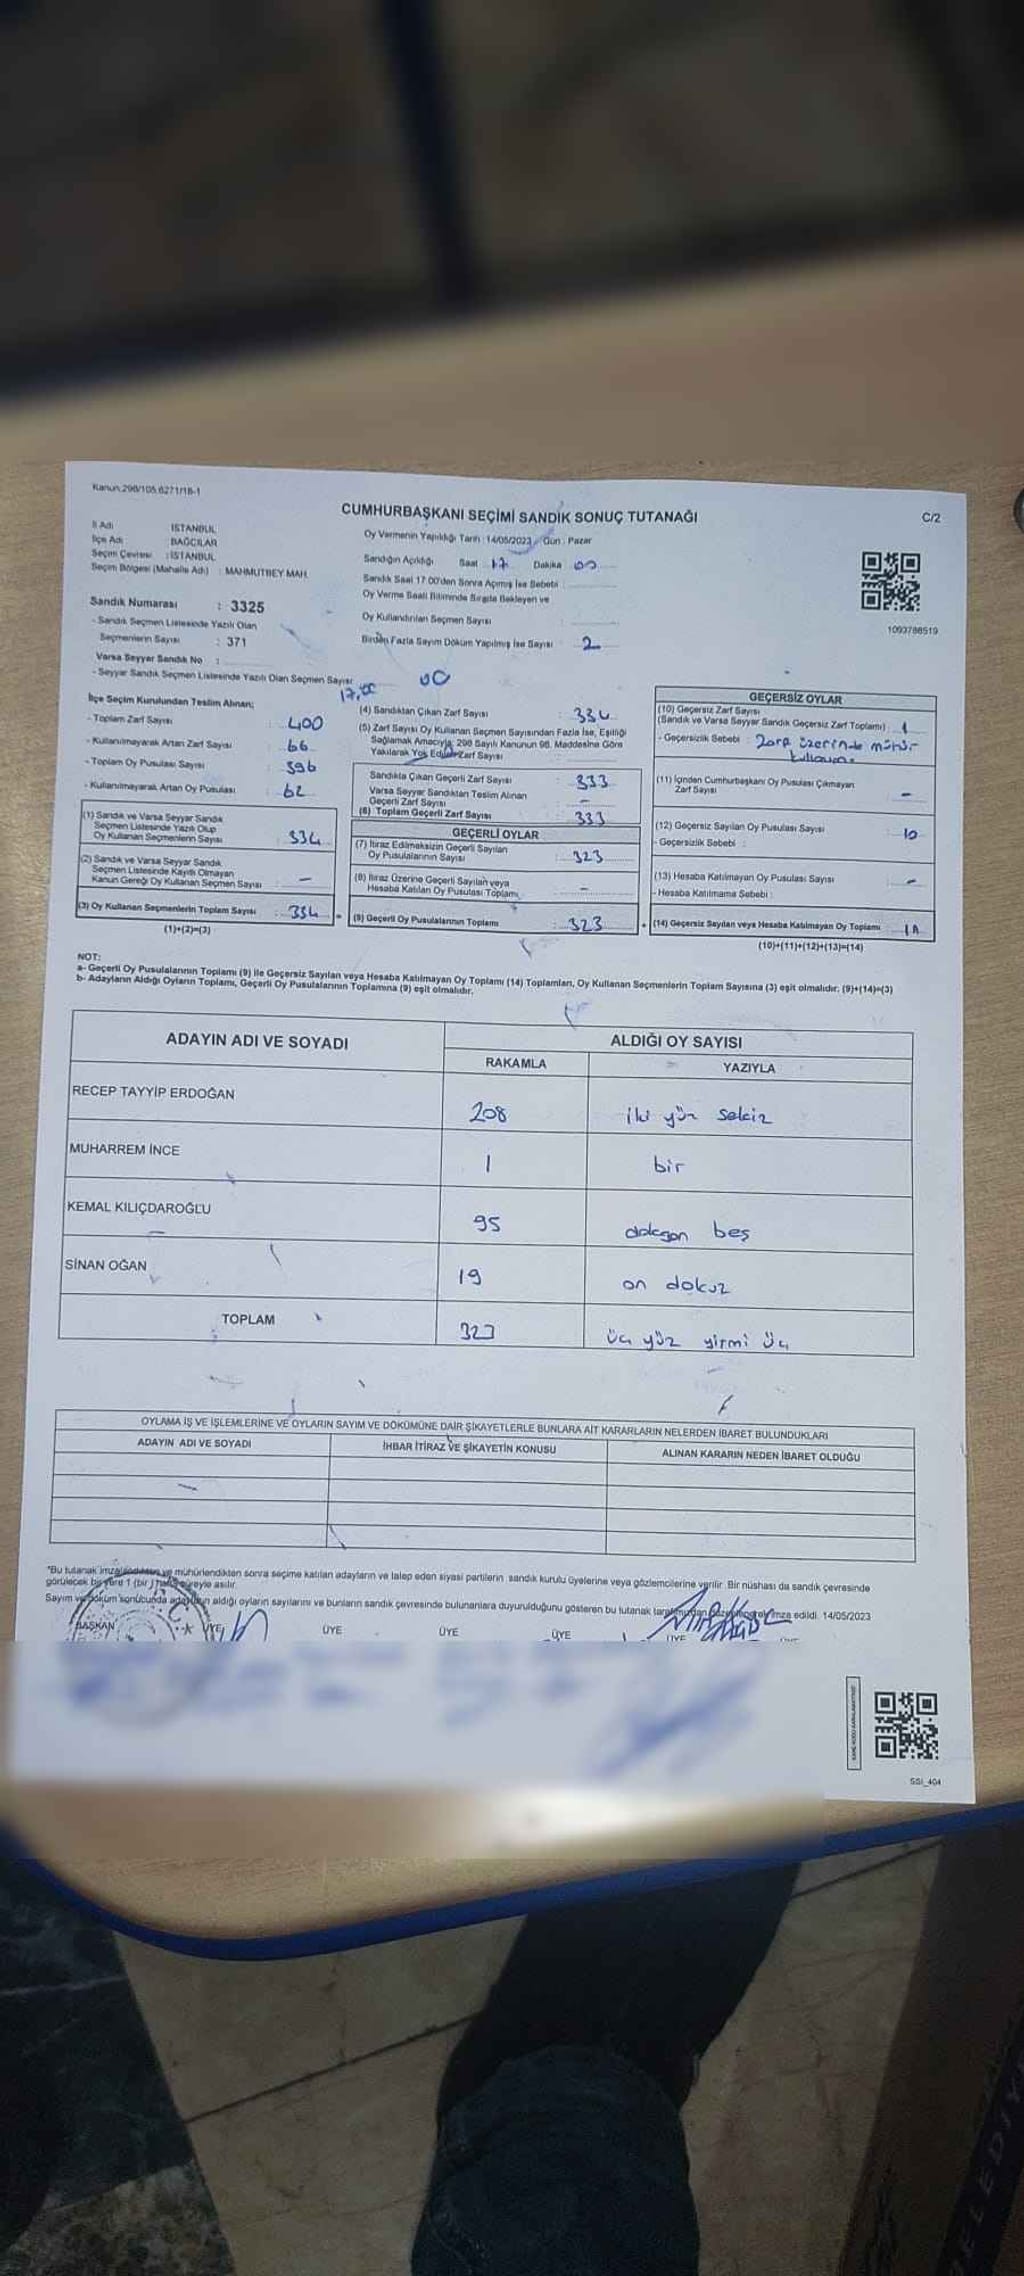 Kanun.298/105.6271/18-1
CUMHURBAŞKANI SEÇİMİ SANDIK SONUÇ TUTANAĞI
C/2
İl Adı : İSTANBUL
İlçe Adı : BAĞCILAR
Seçim Çevresi : İSTANBUL
Seçim Bölgesi (Mahalle Adı) : MAHMUTBEY MAH.
Oy Vermenin Yapıldığı Tarih : 14/05/2023 Gün : Pazar
Sandığın Açıldığı Saat 17 Dakika 00
Sandık Saat 17:00'den Sonra Açılmış İse Sebebi :
Oy Verme Saati Bitiminde Sırada Bekleyen ve
Oy Kullandırılan Seçmen Sayısı :
Birden Fazla Sayım Döküm Yapılmış İse Sayısı : 2
1093788519
Sandık Numarası : 3325
- Sandık Seçmen Listesinde Yazılı Olan
Seçmenlerin Sayısı : 371
Varsa Seyyar Sandık No :
- Seyyar Sandık Seçmen Listesinde Yazılı Olan Seçmen Sayısı
17,00
00
İlçe Seçim Kurulundan Teslim Alınan;
- Toplam Zarf Sayısı : 400
- Kullanılmayarak Artan Zarf Sayısı : 66
- Toplam Oy Pusulası Sayısı : 396
- Kullanılmayarak Artan Oy Pusulası : 62
(1) Sandık ve Varsa Seyyar Sandık
Seçmen Listesinde Yazılı Olup
Oy Kullanan Seçmenlerin Sayısı : 334
(2) Sandık ve Varsa Seyyar Sandık
Seçmen Listesinde Kayıtlı Olmayan
Kanun Gereği Oy Kullanan Seçmen Sayısı : -
(3) Oy Kullanan Seçmenlerin Toplam Sayısı : 334
(1)+(2)=(3)
(4) Sandıktan Çıkan Zarf Sayısı : 334
(5) Zarf Sayısı Oy Kullanan Seçmen Sayısından Fazla İse, Eşitliği
Sağlamak Amacıyla; 298 Sayılı Kanunun 98. Maddesine Göre
Yakılarak Yok Edilen Zarf Sayısı :
Sandıkta Çıkan Geçerli Zarf Sayısı : 333
Varsa Seyyar Sandıktan Teslim Alınan
Geçerli Zarf Sayısı : -
(6) Toplam Geçerli Zarf Sayısı : 333
GEÇERLİ OYLAR
(7) İtiraz Edilmeksizin Geçerli Sayılan
Oy Pusulalarının Sayısı : 323
(8) İtiraz Üzerine Geçerli Sayılan veya
Hesaba Katılan Oy Pusulası Toplamı : -
(9) Geçerli Oy Pusulalarının Toplamı : 323
GEÇERSİZ OYLAR
(10) Geçersiz Zarf Sayısı
(Sandık ve Varsa Seyyar Sandık Geçersiz Zarf Toplamı) : 1
- Geçersizlik Sebebi : Zarf üzerinde mühür
(11) İçinden Cumhurbaşkanı Oy Pusulası Çıkmayan
Zarf Sayısı : -
(12) Geçersiz Sayılan Oy Pusulası Sayısı : 10
- Geçersizlik Sebebi :
(13) Hesaba Katılmayan Oy Pusulası Sayısı : -
- Hesaba Katılmama Sebebi :
(14) Geçersiz Sayılan veya Hesaba Katılmayan Oy Toplamı : 11
(10)+(11)+(12)+(13)=(14)
NOT:
a- Geçerli Oy Pusulalarının Toplamı (9) ile Geçersiz Sayılan veya Hesaba Katılmayan Oy Toplamı (14) Toplamları, Oy Kullanan Seçmenlerin Toplam Sayısına (3) eşit olmalıdır. (9)+(14)=(3)
b- Adayların Aldığı Oyların Toplamı, Geçerli Oy Pusulalarının Toplamına (9) eşit olmalıdır.
ADAYIN ADI VE SOYADI
ALDIĞI OY SAYISI
RAKAMLA YAZIYLA
RECEP TAYYİP ERDOĞAN 208 iki yüz sekiz
MUHARREM İNCE 1 bir
KEMAL KILIÇDAROĞLU 95 doksan beş
SİNAN OĞAN 19 on dokuz
TOPLAM 323 üç yüz yirmi üç
OYLAMA İŞ VE İŞLEMLERİNE VE OYLARIN SAYIM VE DÖKÜMÜNE DAİR ŞİKAYETLERLE BUNLARA AİT KARARLARIN NELERDEN İBARET BULUNDUKLARI
ADAYIN ADI VE SOYADI İHBAR İTİRAZ VE ŞİKAYETİN KONUSU ALINAN KARARIN NEDEN İBARET OLDUĞU
*Bu tutanak imzalandıktan ve mühürlendikten sonra seçime katılan adayların ve talep eden siyasi partilerin sandık kurulu üyelerine veya gözlemcilerine verilir. Bir nüshası da sandık çevresinde
görülecek bir yere 1 (bir) hafta süreyle asılır.
Sayım ve döküm sonucunda adayların aldığı oyların sayılarını ve bunların sandık çevresinde bulunanlara duyurulduğunu gösteren bu tutanak tarafımızdan düzenlenerek imza edildi. 14/05/2023
BAŞKAN ÜYE ÜYE ÜYE ÜYE ÜYE ÜYE
SSI_404